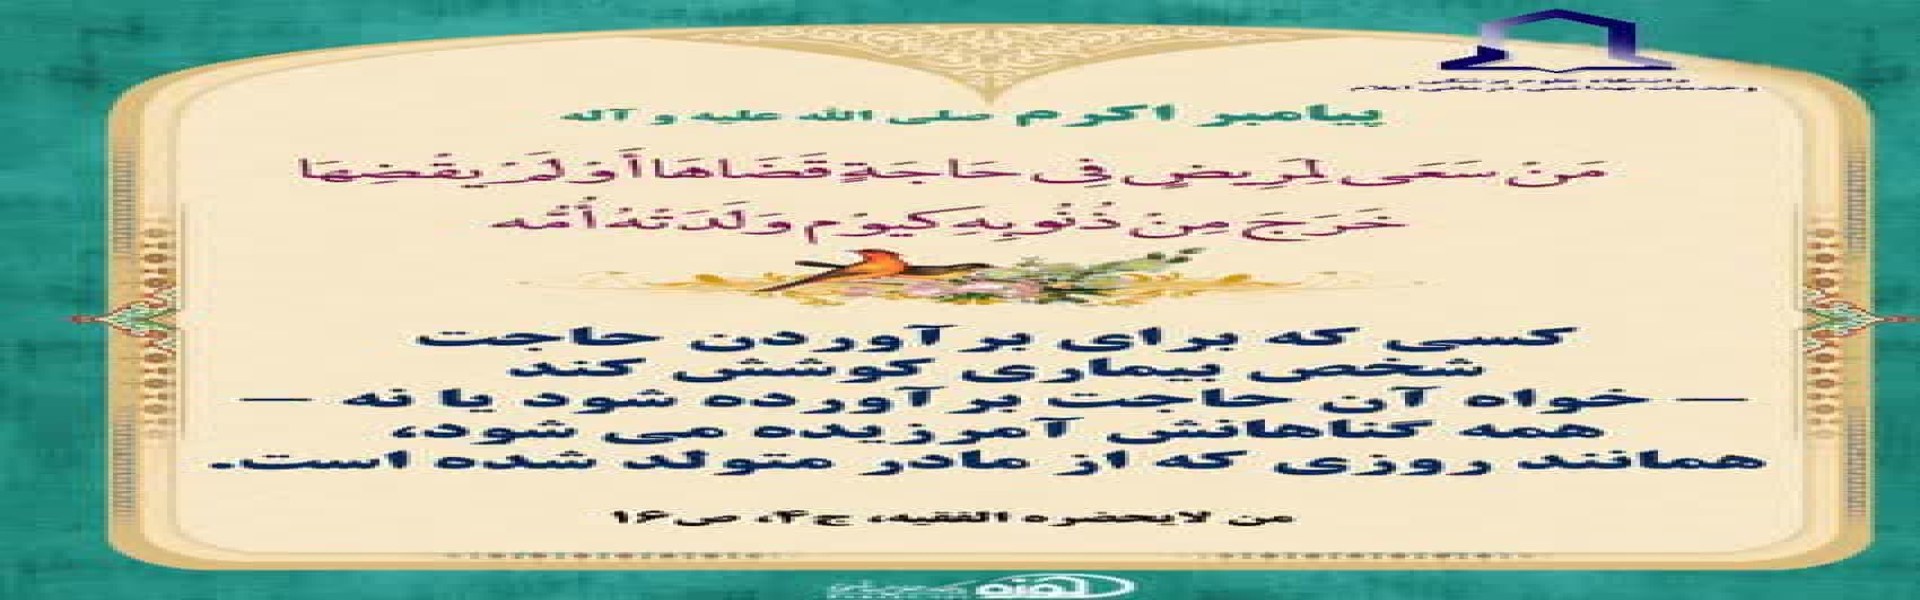 دانشگاه علوم پزشکی
و خدمات بهداشتی درمانی ایلام
پیامبر اکرم صلی الله علیه و آله
مَنْ سَعَى لِمَرِيضٍ فِي حَاجَةٍ قَضَاهَا أَوْ لَمْ يَقْضِهَا
خَرَجَ مِنْ ذُنُوبِهِ كَيَوْمِ وَلَدَتْهُ أُمُّه
کسی که برای برآوردن حاجت
شخص بیماری کوشش کند
— خواه آن حاجت برآورده شود یا نه —
همه گناهانش آمرزیده می شود،
همانند روزی که از مادر متولد شده است.
من لایحضره الفقیه، ج۴، ص۱۶